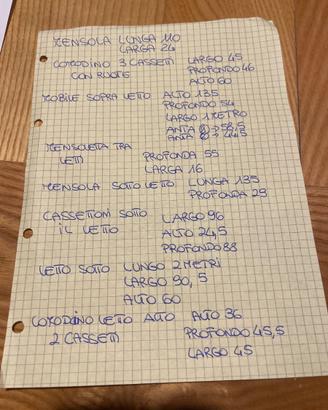 MENSOLA LUNGA 110
LARGA 24
COMODINO 3 CASSETTI LARGO 45
CON RUOTE PROFONDO 46
ALTO 60
MOBILE SOPRA LETTO ALTO 135
PROFONDO 54
LARGO 1 METRO
ANTA ① → 58,5
ANTA ② → 44,5
MENSOLETTA TRA PROFONDA 55
LETTI LARGA 16
MENSOLA SOTTO LETTO LUNGA 135
PROFONDA 29
CASSETTONI SOTTO LARGO 96
IL LETTO ALTO 24,5
PROFONDO 88
LETTO SOTTO LUNGO 2 METRI
LARGO 90,5
ALTO 60
COMODINO LETTO ALTO ALTO 36
2 CASSETTI PROFONDO 45,5
LARGO 45